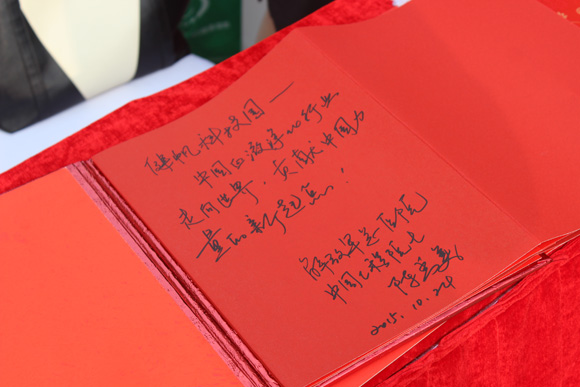 健帆科技园——
中国血液净化行业
走向世界，贡献中国力
量的新起点！
解放军总医院
中国工程院院士
陈香美
2015.10.24